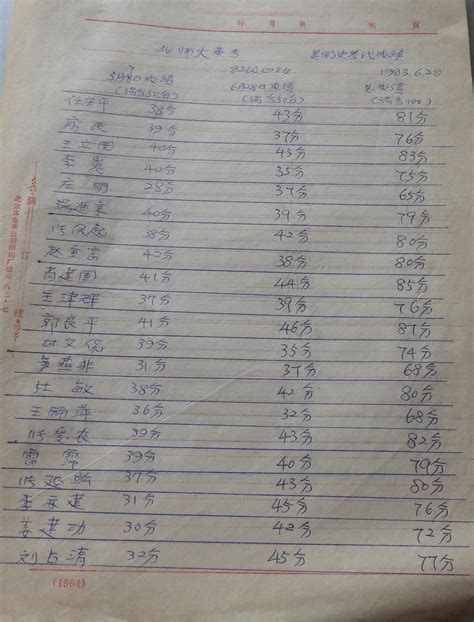 年 月 日 第 页
北师大英专 美国史基础成绩
8260 1983.6.28
5月8日成绩 6月28日成绩 总成绩
(满分50分) (满分50分) (满分100)
任庆平 38分 43分 81分
39分 37分 76分
王立国 40分 43分 83分
李嵬 40分 35分 75分
庄明 28分 37分 65分
燕京 40分 39分 79分
38分 42分 80分
赵金京 42分 38分 80分
肖建国 41分 44分 85分
王津辉 37分 39分 76分
郭良平 41分 46分 87分
田文保 39分 35分 74分
燕非 31分 37分 68分
杜敏 38分 42分 80分
王丽萍 36分 32分 68分
39分 43分 82分
雷霈 39分 40分 79分
37分 43分 80分
李安建 31分 45分 76分
姜建功 30分 42分 72分
刘占清 32分 45分 77分
装订线
北京市电车公司印刷厂出品 八二·七
(1564)